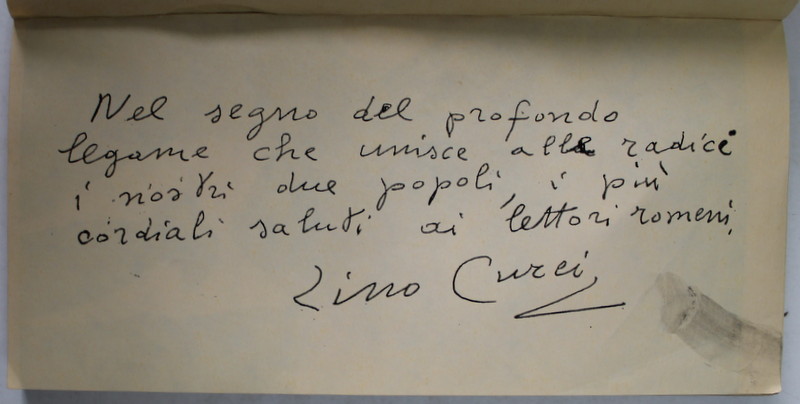 Nel segno del profondo
legame che unisce alle radici
i nostri due popoli, i più
cordiali saluti ai lettori romeni.
Lino Curci